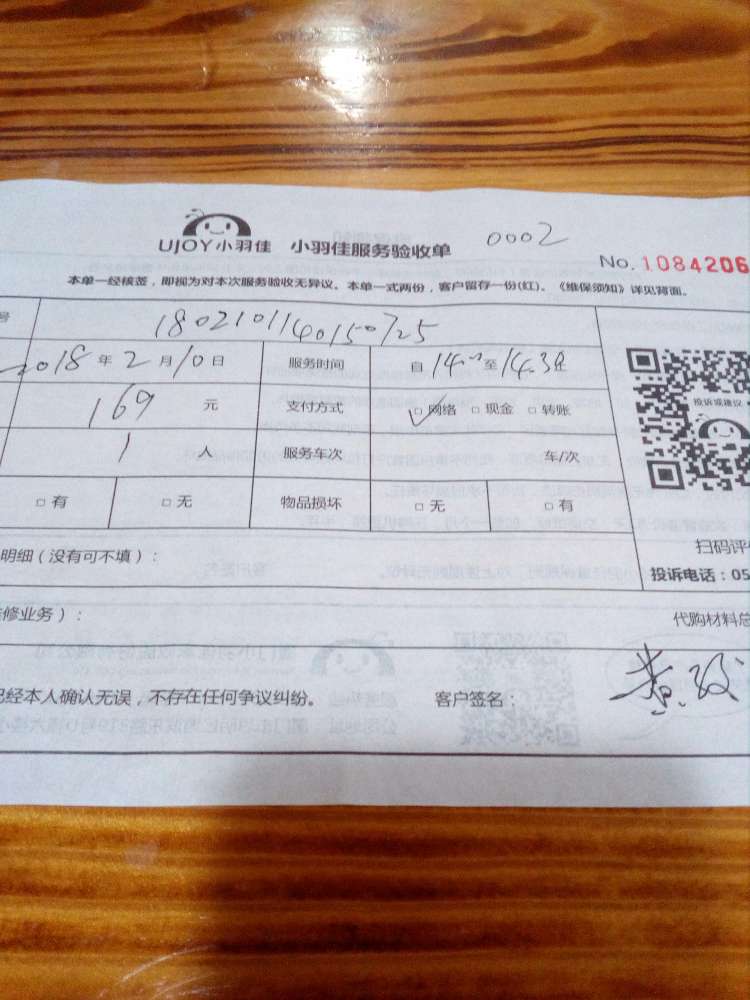 UJOY小羽佳 小羽佳服务验收单 0002
No. 1084206
本单一经核签，即视为对本次服务验收无异议。本单一式两份，客户留存一份(红)。《维保须知》详见背面。
号 1802101140150725
2018 年 2 月 10 日 服务时间 自 至 14.30
169 元 支付方式 □ 网络 □ 现金 □ 转账
1 人 服务车次 车/次
□ 有 □ 无 物品损坏 □ 无 □ 有
投诉或建议
扫码评
投诉电话：05
明细（没有可不填）：
修业务）： 代购材料总
已经本人确认无误，不存在任何争议纠纷。 客户签名： 黄